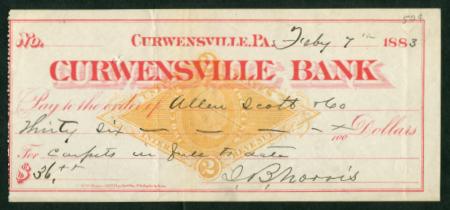 508
No. CURWENSVILLE, PA. Feby 7th 1883
CURWENSVILLE BANK
Pay to the order of Allen Scott & Co
Thirty Six — — — — x/100 Dollars
For Carpets in full to date
$36.xx
2